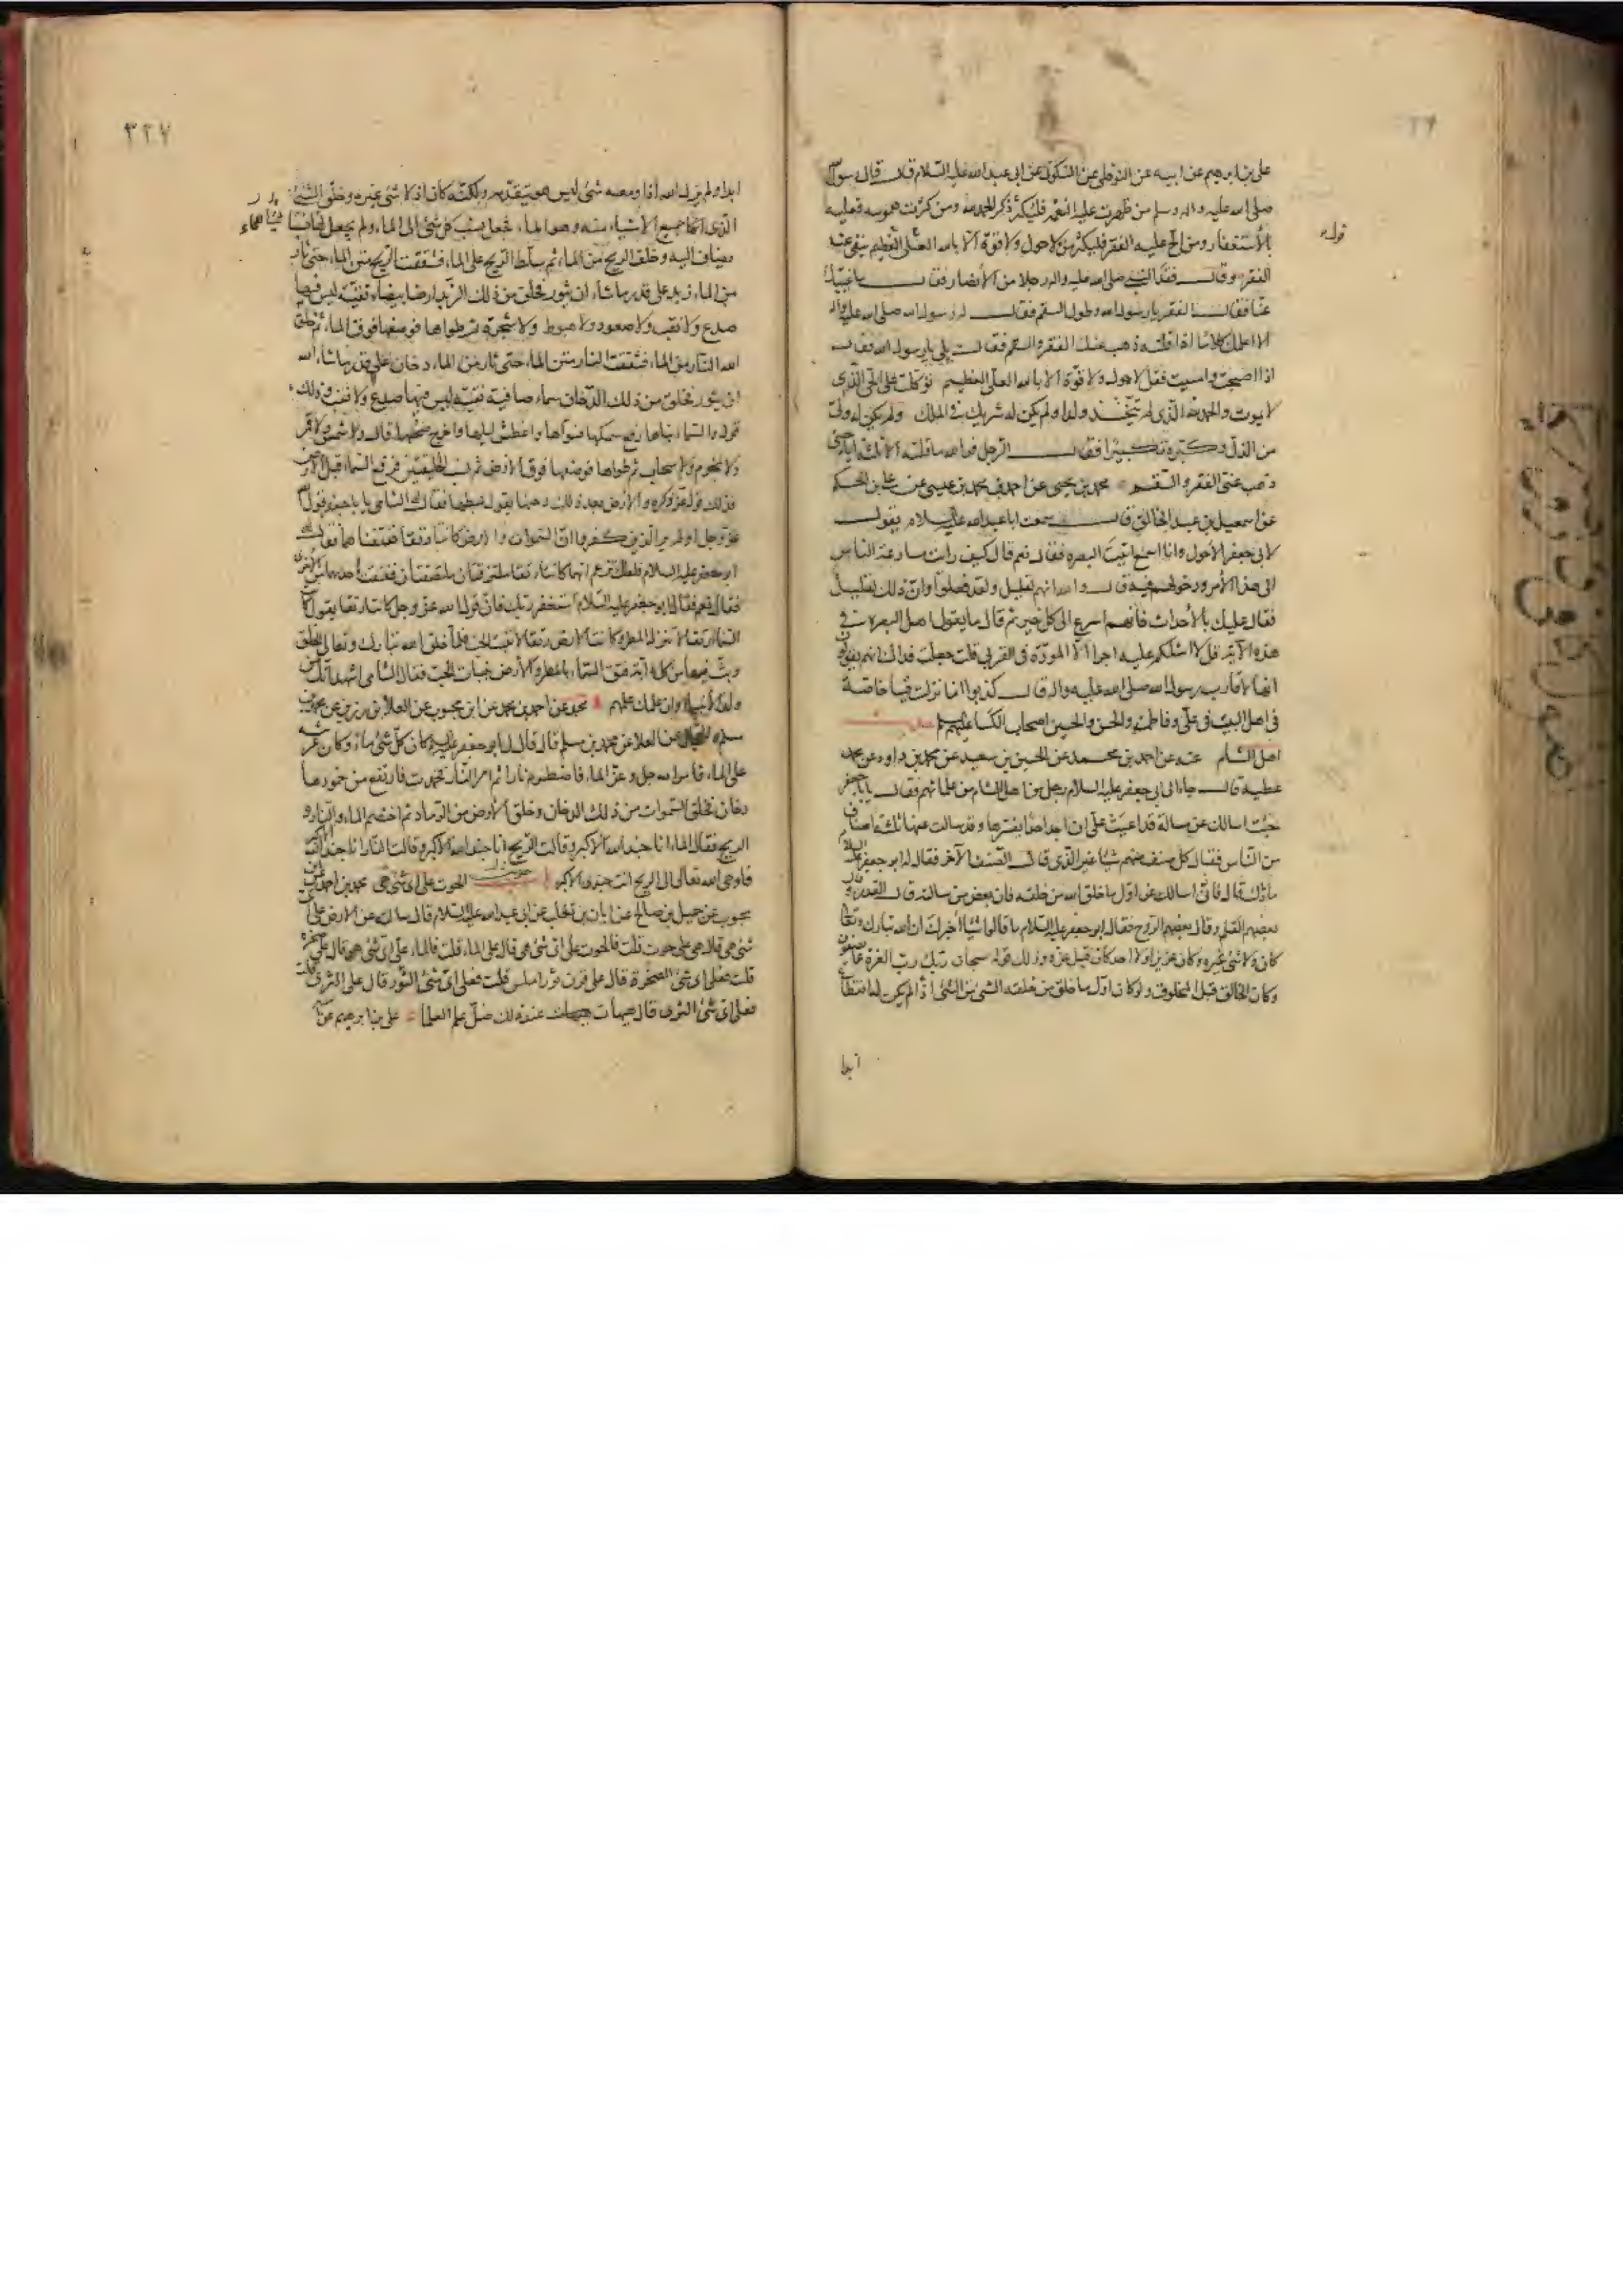 علي بن ابرهيم عن ابيه عن النوفلي عن السكوني عن ابي عبد الله عليه السلام قال قال رسول الله
صلى الله عليه واله وسلم من ظهرت عليه النعمة فليكثر ذكر الحمد لله ومن كثرت همومه فعليه
بالأستغفار ومن الح عليه الفقر فليكثر من لا حول ولا قوة الا بالله العلي العظيم ينفى عنه
الفقر وقال فقد النبي صلى الله عليه واله رجلا من الأنصار فقال ما غيبك
عنا فقال الفقر يا رسول الله وطول السقم فقال له رسول الله صلى الله عليه واله
الا اعلمك كلاما اذا قلته ذهب عنك الفقر والسقم فقال بلى يا رسول الله فقال
اذا اصبحت وامسيت فقل لا حول ولا قوة الا بالله العلي العظيم توكلت على الحي الذي
لا يموت والحمد لله الذي لم يتخذ ولدا ولم يكن له شريك في الملك ولم يكن له ولي
من الذل وكبره تكبيرا فقال الرجل فوالله ما قلته الا ثلثة ايام حتى
ذهب عني الفقر والسقم محمد بن يحيى عن احمد بن محمد بن عيسى عن علي بن الحكم
عن اسمعيل بن عبد الخالق قال سمعت ابا عبد الله عليه السلام يقول
لابي جعفر الأحول وانا اسمع اتيت البصره فقال نعم قال كيف رايت مسارعة الناس
الى هذا الأمر ودخولهم فيه قال والله انهم لقليل ولقد فعلوا وان ذلك لقليل
فقال عليك بالأحداث فأنهم اسرع الى كل خير ثم قال ما يقول اهل البصره في
هذه الآية قل لا اسئلكم عليه اجرا الا المودة في القربى قلت جعلت فداك انهم يقولون
انها لأقارب رسول الله صلى الله عليه واله قال كذبوا انما نزلت فينا خاصة
في اهل البيت في علي وفاطمة والحسن والحسين اصحاب الكسا عليهم السلام
اهل الشام عنه عن احمد بن محمد عن الحسين بن سعيد عن محمد بن داود عن محمد
عطية قال جاء الى ابي جعفر عليه السلام رجل من اهل الشام من علمائهم فقال يا با جعفر
جئت اسالك عن مسالة قد اعيت علي ان اجد احدا يفسرها وقد سالت عنها ثلثة اصناف
من الناس فقال كل صنف منهم شيئا غير الذي قال الصنف الآخر فقال له ابو جعفر عليه السلام
ما ذاك قال فاني اسالك عن اول ما خلق الله من خلقه فان بعض من سالته قال القدر وقال
بعضهم القلم وقال بعضهم الروح فقال ابو جعفر عليه السلام ما قالوا شيئا اخبرك ان الله تبارك وتعالى
كان ولا شئ غيره وكان عزيزا ولا احد كان قبل عزه وذلك قوله سبحان ربك رب العزة عما يصفون
وكان الخالق قبل المخلوق ولو كان اول ما خلق من خلقه الشئ من الشئ اذا لم يكن له انقطاع
ابدا
٣٢٧
ابدا ولم يزل الله اذا ومعه شئ ليس هو يتقدمه ولكنه كان اذ لا شئ غيره وخلق الشئ
الذي جميع الأشياء منه وهو الماء فجعل نسب كل شئ الى الماء ولم يجعل للماء نسبا
يضاف اليه وخلق الريح من الماء ثم سلط الريح على الماء فشققت الريح متن الماء حتى ثار
من الماء زبد على قدر ما شاء ان يثور فخلق من ذلك الزبد ارضا بيضاء نقية ليس فيها
صدع ولا نقب ولا صعود ولا هبوط ولا شجرة ثم طواها فوضعها فوق الماء ثم خلق
الله النار من الماء فشققت النار متن الماء حتى ثار من الماء دخان على قدر ما شاء الله
ان يثور فخلق من ذلك الدخان سماء صافية نقية ليس فيها صدع ولا نقب وذلك
قوله والسماء بناها رفع سمكها فسواها واغطش ليلها واخرج ضحيها قال ولا شمس ولا قمر
ولا نجوم ولا سحاب ثم طواها فوضعها فوق الأرض ثم نسب الخليقتين فرفع السماء قبل الأرض
فذلك قوله عز ذكره والأرض بعد ذلك دحيها يقول بسطها فقال له الشامي يا با جعفر قول الله
عز وجل اولم ير الذين كفروا ان السموات والارض كانتا رتقا ففتقناهما فقال له
ابو جعفر عليه السلام فلعلك تزعم انهما كانتا رتقا ملتزقتان ملتصقتان ففتقت احديهما من الأخرى
فقال نعم فقال ابو جعفر عليه السلام استغفر ربك فان قول الله عز وجل كانتا رتقا يقول كانت
السماء رتقا لا تنزل المطر وكانت الأرض رتقا لا تنبت الحب فلما خلق الله تبارك وتعالى الخلق
وبث فيها من كل دابة فتق السماء بالمطر والأرض بنبات الحب فقال الشامي اشهد انك من
ولد الأنبيا وان علمك علمهم محمد عن احمد بن محمد عن ابن محبوب عن العلا بن رزين عن محمد بن
مسلم عن العلا عن محمد بن مسلم قال قال لي ابو جعفر عليه السلام كان كل شئ ماء وكان عرشه
على الماء فأمر الله جل وعز الماء فاضطرم نارا ثم امر النار فخمدت فارتفع من خمودها
دخان فخلق السموات من ذلك الدخان وخلق الأرض من الرماد ثم اختصم الماء والنار و
الريح فقال الماء انا جند الله الأكبر وقالت الريح انا جند الله الأكبر وقالت النار انا جند الله الأكبر
فاوحى الله تعالى الى الريح انت جندي الأكبر الحوت على اي شئ هي محمد عن احمد عن ابن
محبوب عن جميل بن صالح عن ابان بن تغلب عن ابي عبد الله عليه السلام قال سالته عن الارض على اي
شئ هي قال هي على حوت قلت فالحوت على اي شئ هي قال على الماء قلت فالماء على اي شئ هو قال على صخرة
قلت فعلى اي شئ الصخرة قال على قرن ثور املس قلت فعلى اي شئ الثور قال على الثرى قلت
فعلى اي شئ الثرى قال هيهات عند ذلك ضل علم العلما علي بن ابرهيم عن